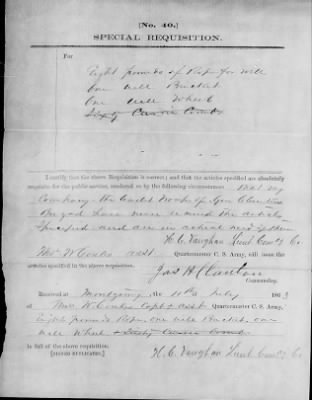 [No. 40.]
SPECIAL REQUISITION.
For
Eight pounds of Rope for well
One well Bucket
One well Wheel
Sixty Currie Combs
I certify that the above Requisition is correct; and that the articles specified are absolutely
requisite for the public service, rendered so by the following circumstances: that my
Company
have never the articles
specified and are in actual need of them
H. C. Vaughan Lieut Comdg Co.
Quartermaster C. S. Army, will issue the
articles specified in the above requisition.
Jas H Clanton
Commanding.
Received at Montgomery the 10th July 1863
of Thos. W. Capt & Quartermaster C. S. Army,
Eight pounds Rope, one well Bucket, one
well Wheel & Sixty Currie Combs
in full of the above requisition.
[SIGNED DUPLICATES.]
H. C. Vaughan Lieut Comdg Co